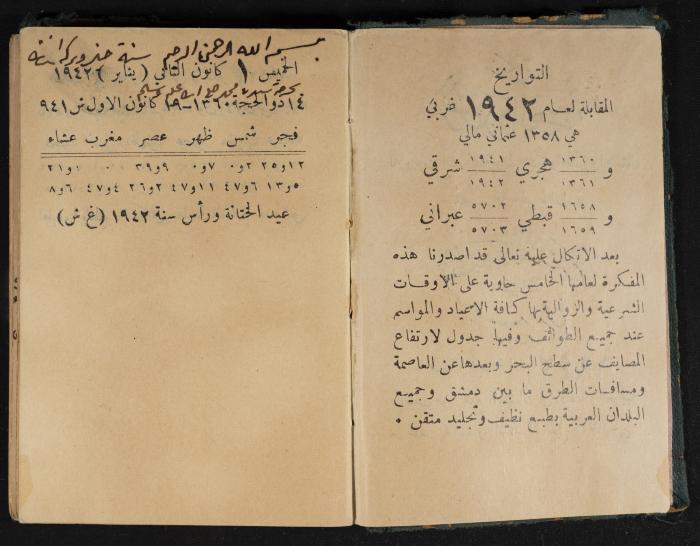 التواريخ
المقابلة لعام ١٩٤٢ غربي
هي ١٣٥٨ عثماني مالي
و ١٣٦٠ / ١٣٦١ هجري ١٩٤١ / ١٩٤٢ شرقي
و ١٦٥٨ / ١٦٥٩ قبطي ٥٧٠٢ / ٥٧٠٣ عبراني
بعد الاتكال عليه تعالى قد اصدرنا هذه
المفكرة لعامها الخامس حاوية على الاوقات
الشرعية والزوالية بها كافة الاعياد والمواسم
عند جميع الطوائف وفيها جدول لارتفاع
المصايف عن سطح البحر وبعدها عن العاصمة
ومسافات الطرق ما بين دمشق وجميع
البلدان العربية بطبع نظيف وتجليد متقن ٠
بسم الله الرحمن الرحيم سنة خير وبركة
الخميس ١ كانون الثاني (يناير) ١٩٤٢
١٤ ذو الحجة ١٣٦٠-١٩ كانون الاول ش ٩٤١
فجر شمس ظهر عصر مغرب عشاء
١٢و٢٥ ٢و٠ ٧و٠ ٩و٣٩ ٠ ٠ ١و٢١
٥و١٣ ٦و٤٧ ١١و٤٧ ٢و٢٦ ٤و٤٧ ٦و٨
عيد الختانة ورأس سنة ١٩٤٢ (غ ش)